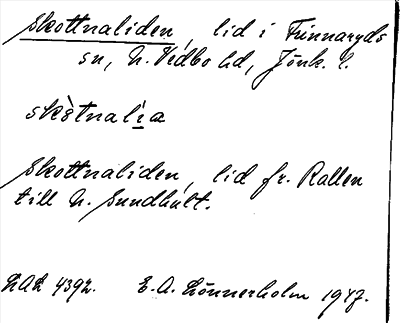 Skottnaliden, lid i Finnaryds
sn, N. Vedbo hd, Jönk. l.
skò̀tnalía
Skottnaliden, lid fr. Rallen
till N. Sundhult.
LAL 4392. E. A. Lönnerholm 1947.